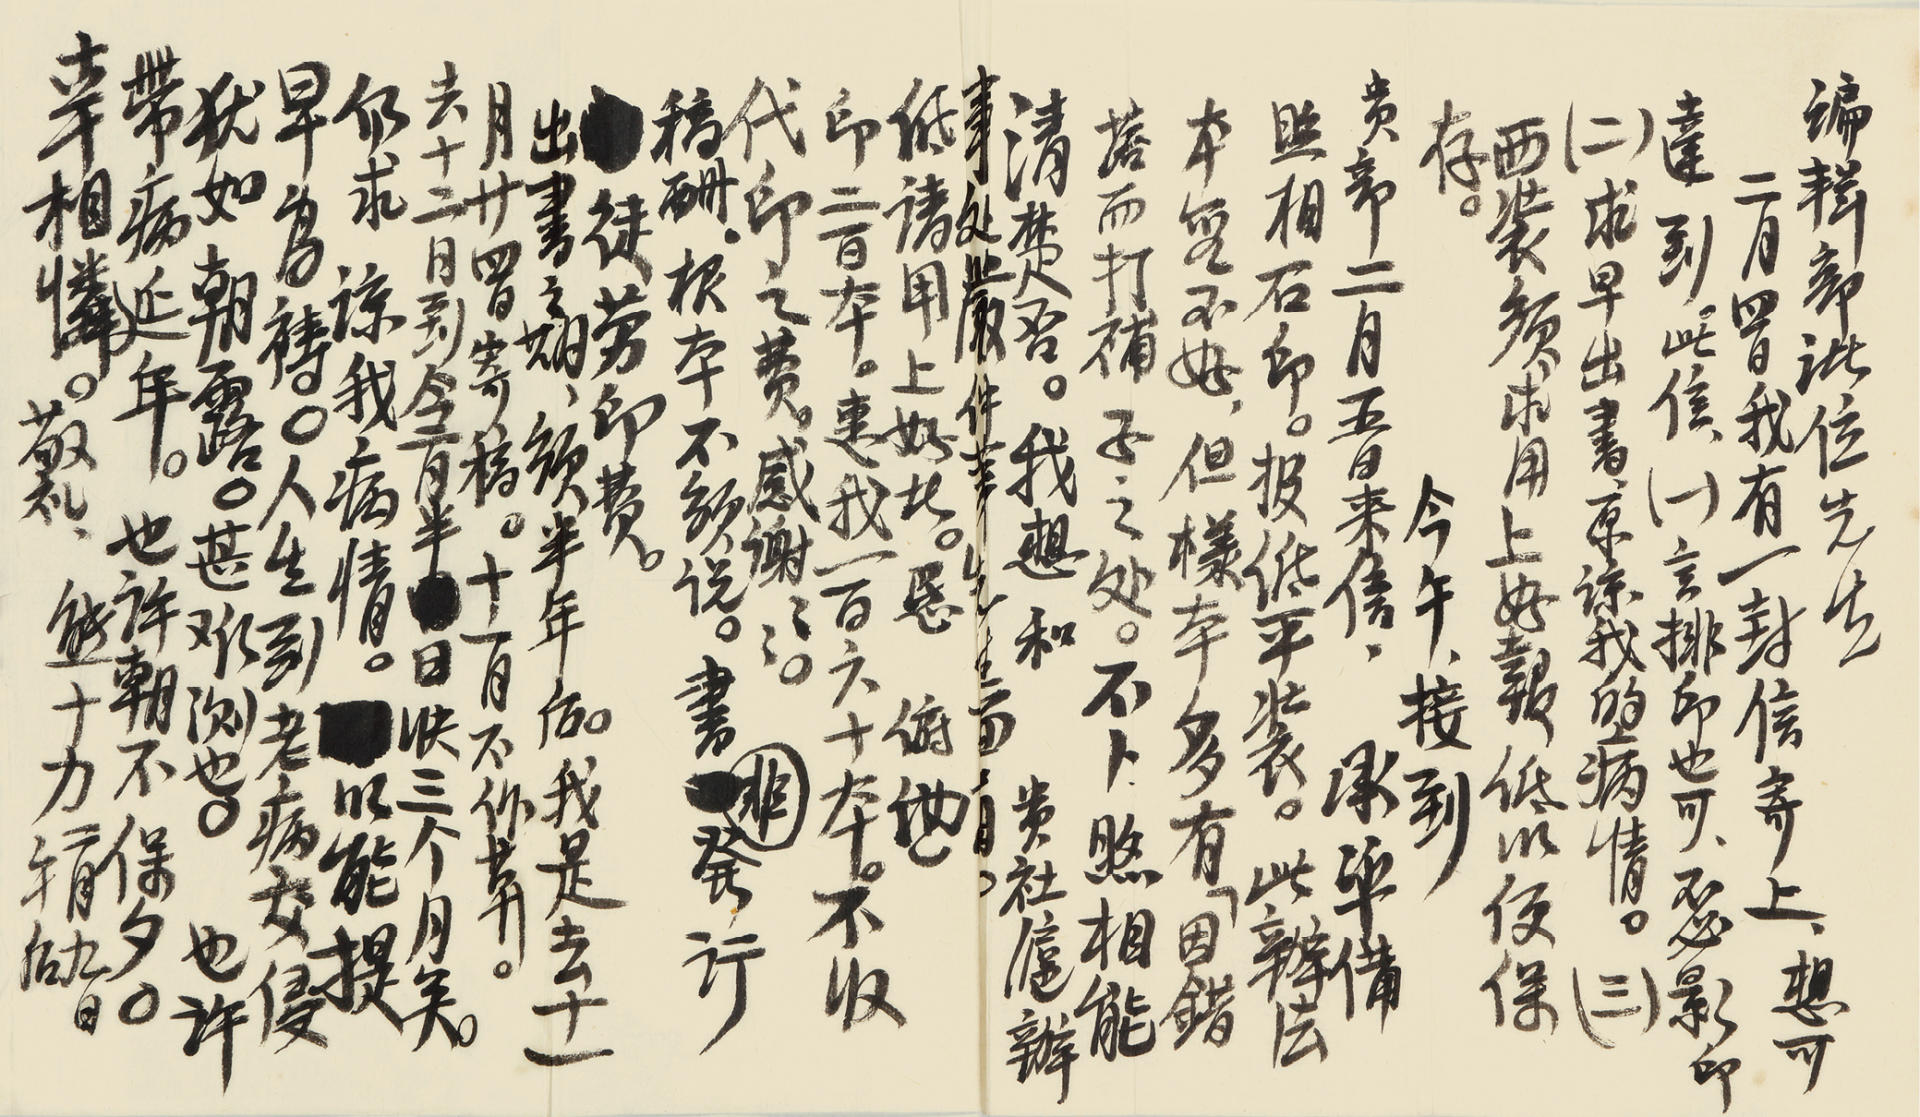 编辑部诸位先生
二月四日我有一封信寄上、想可
达到此信、(一)言排印也可、不必影印
(二)求早出書、原谅我的病情。(三)
西装须求用上好報纸以便保
存。
今午、接到
贵部二月五日来信、承準備
照相石印。报纸平装。此辦法
本無不好、但樣本多有「因錯
落而打補子之处。不卜照相能
清楚否。我想和贵社滬辦
事处严
纸请用上好者。
印二百本。惠我一百六十本。不收
代印之费。感谢、、。
稿酬。根本不须说。書發行
非
徒劳印费。
出書之期、须半年后。我是去十一
月廿四日寄稿。十一月不作算。
去十二月到今二月半日快三个月矣。
仍求谅我病情。以能提
早为祷。人生到老病交侵
犹如朝露。甚难测也。也许
带病延年。也许朝不保夕。
幸相憐。敬礼、熊十力二月九日
午后